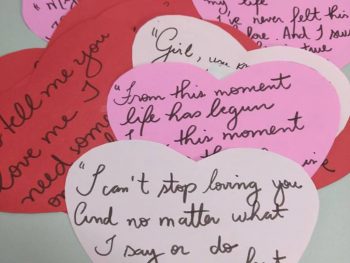 my life
I've never felt this
love. And I swear
true
"Girl, um
tell me you
love me I
need some
"From this moment
life has begun
this moment
"I can't stop loving you
And no matter what
I say or do